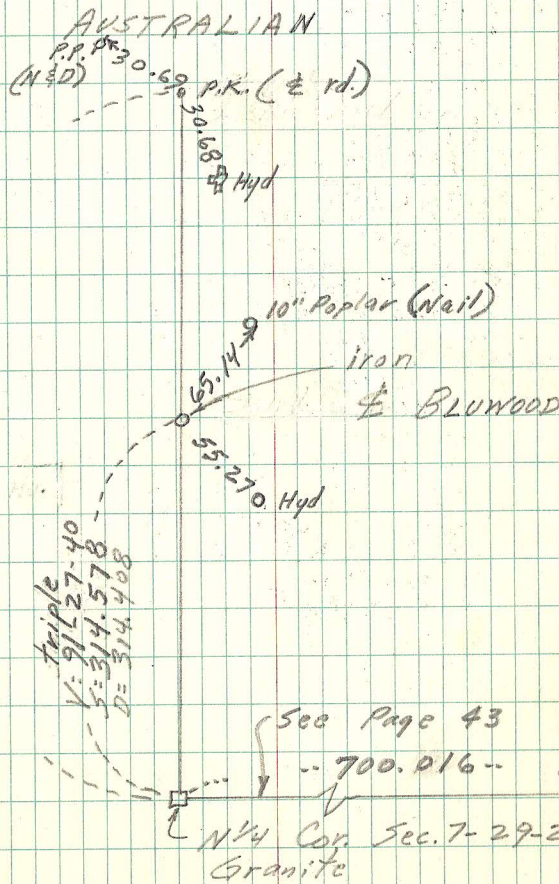 AUSTRALIAN
P.P. PK 30.60
(N&D)
P.K. (℄ rd.)
30.68
Hyd
10" Poplar (Nail)
65.14
iron
℄ BLUWOOD
55.27
Hyd
triple
V= 91-27-40
S= 314.578
D= 314.408
See Page 43
-- 700.016 --
N 1/4 Cor. Sec. 7-29-2
Granite